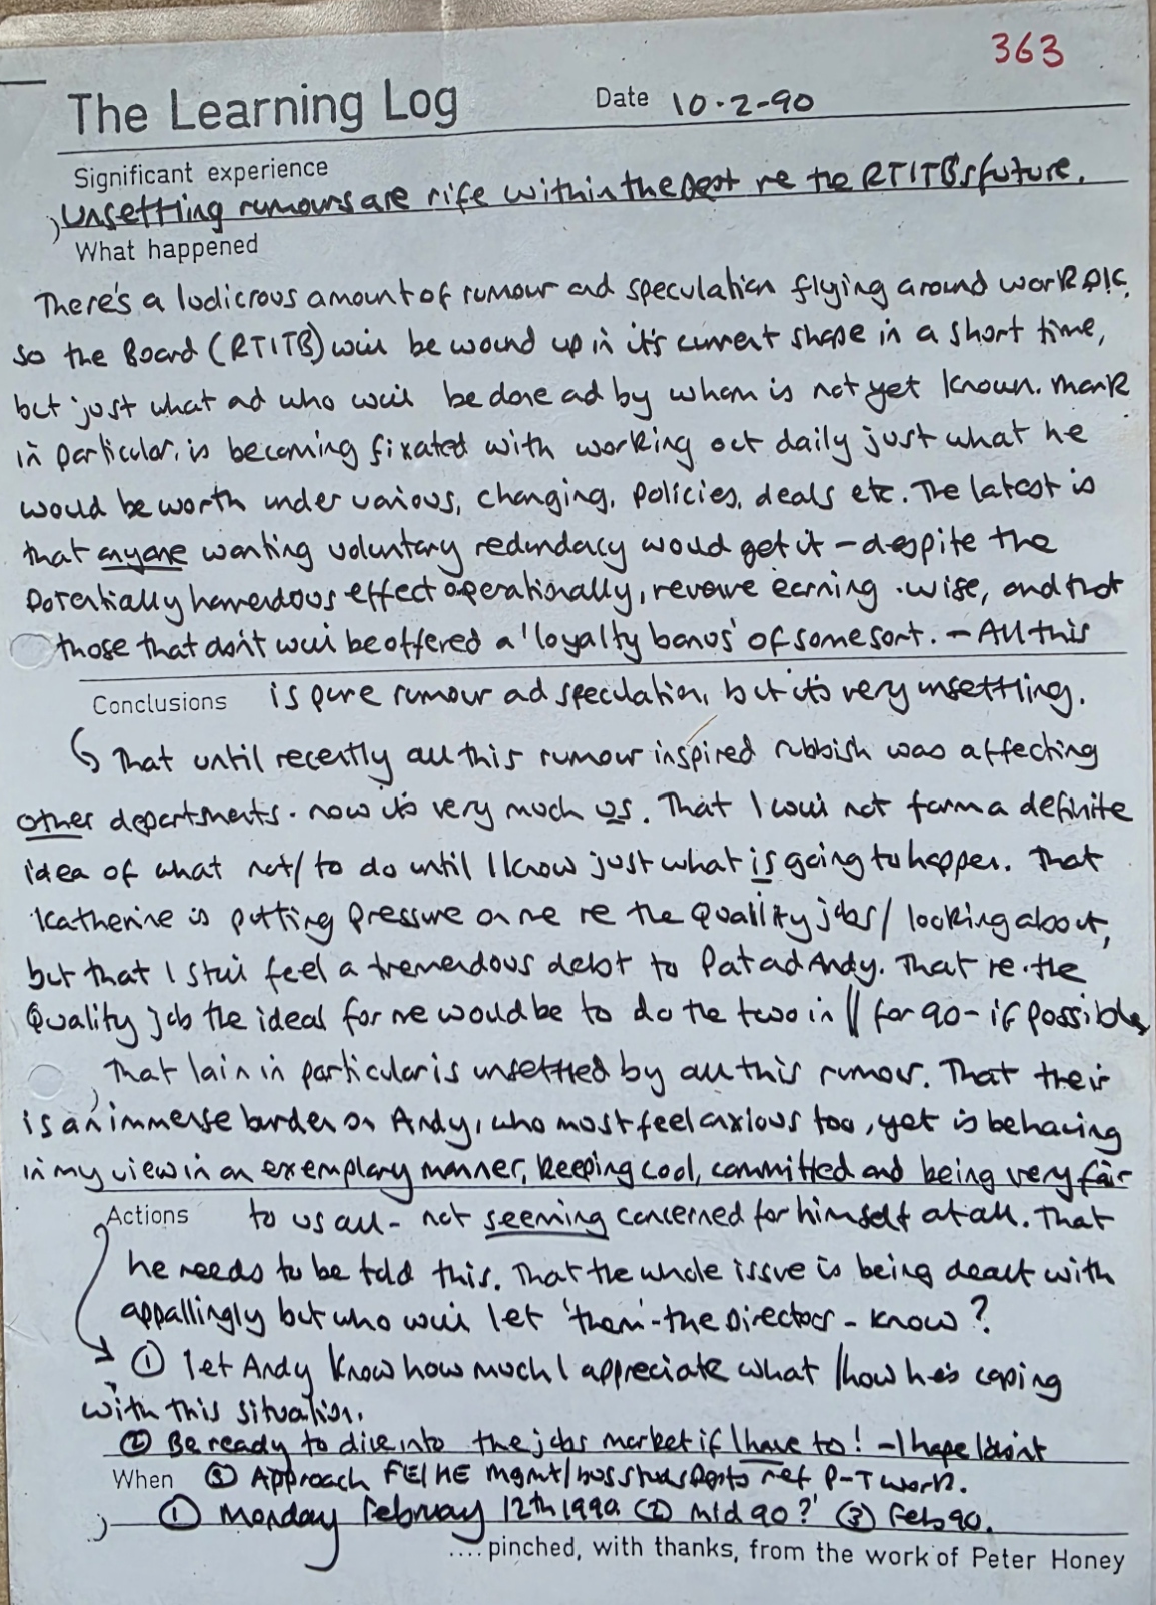 363
The Learning Log Date 10-2-90
Significant experience
Unsettling rumours are rife within the Dept re the RTITB's future.
What happened
There's a ludicrous amount of rumour and speculation flying around work
so the Board (RTITB) will be wound up in it's current shape in a short time,
but just what ad who will be done ad by whom is not yet known. Mark
in particular, is becoming fixated with working out daily just what he
would be worth under various, changing, policies, deals etc. The latest is
that anyone wanting voluntary redundacy would get it - despite the
potentially horrendous effect operationally, revenue earning-wise, and that
those that don't will be offered a 'loyalty bonus' of some sort. - All this
Conclusions is pure rumour ad speculation, but it's very unsettling.
That until recently all this rumour inspired rubbish was affecting
other departments. Now it's very much us. That I will not form a definite
idea of what not/to do until I know just what is going to happen. That
Katherine is putting pressure on me re the Quality jobs/looking about,
but that I still feel a tremendous debt to Pat ad Andy. That re. the
Quality job the ideal for me would be to do the two in || for 90 - if possible
That Iain in particular is unsettled by all this rumour. That their
is an immense burden on Andy, who must feel anxious too, yet is behaving
in my view in an exemplary manner, keeping cool, committed and being very fair
Actions to us all - not seeming concerned for himself at all. That
he needs to be told this. That the whole issue is being dealt with
appallingly but who will let 'them' - the Directors - know?
① Let Andy know how much I appreciate what/how he's coping
with this situation.
② Be ready to dive into the jobs market if I have to! - I hope I don't
When ③ Approach FE/HE mgmt/bus studs Depts ref P-T work.
① Monday February 12th 1990 ② Mid 90? ③ Feb 90.
....pinched, with thanks, from the work of Peter Honey